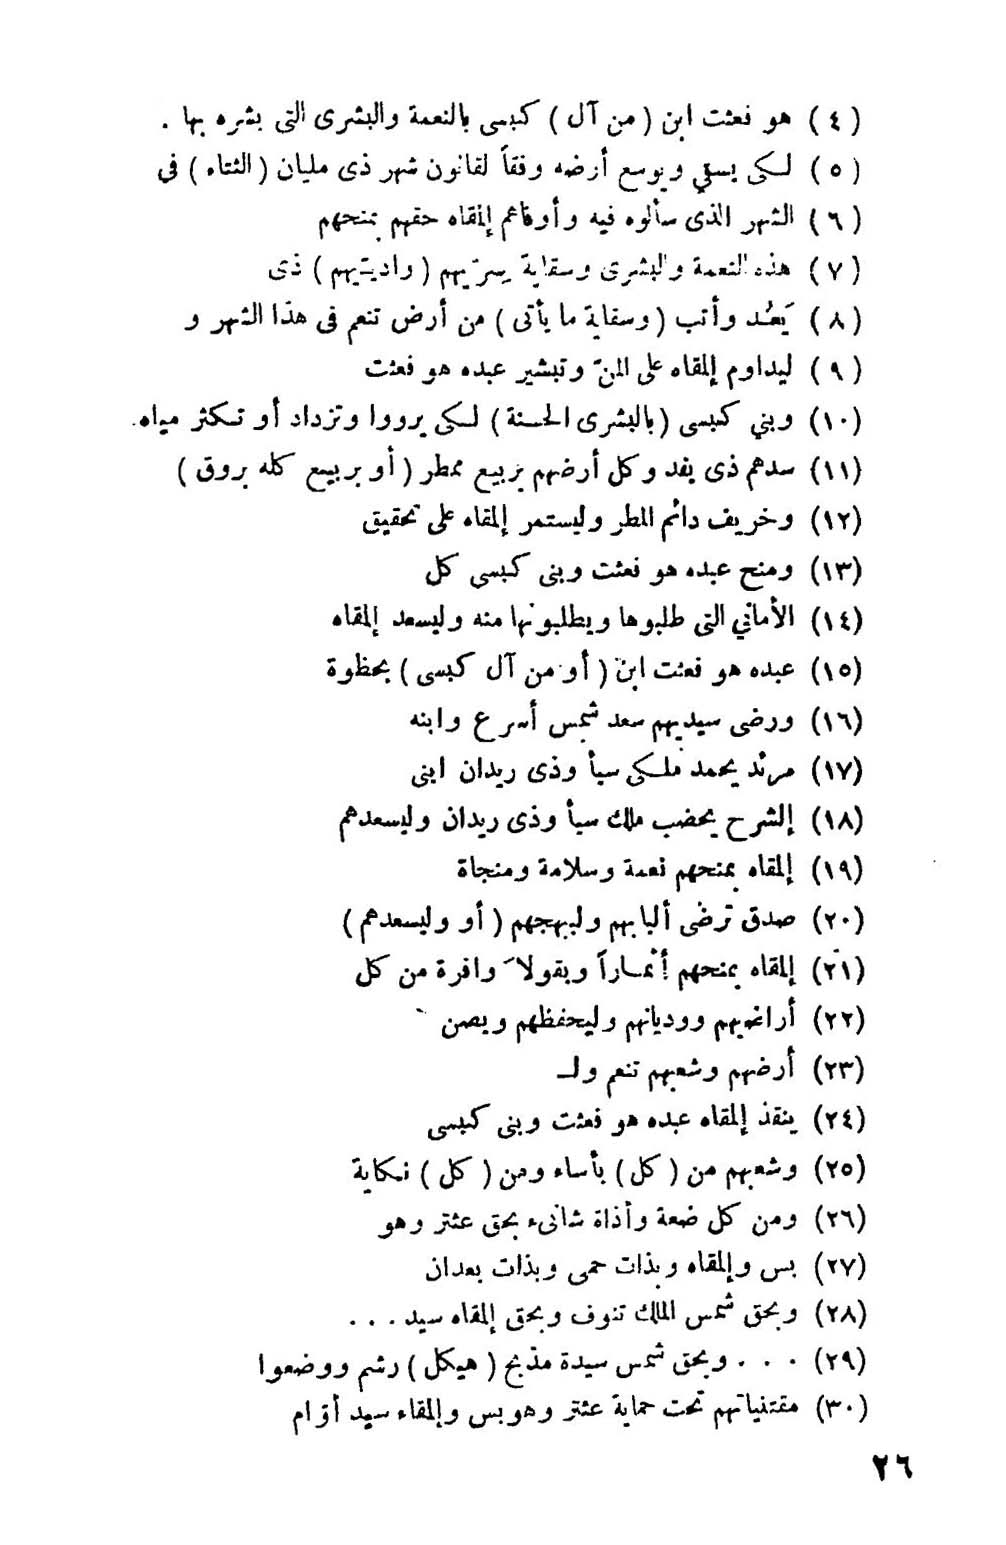 (٤) هو فعثت ابن (من آل) كبسى بالنعمة والبشرى التى بشره بها.
(٥) لكى يسقي ويوسع أرضه وفقاً لقانون شهر ذى مليان (الشتاء) فى
(٦) الشهر الذى سألوه فيه وأوفاهم إلمقاه حقهم بمنحهم
(٧) هذه النعمة والبشرى وسقاية سريهم (واديتهم) ذى
(٨) يَعُد وأتب (وسقاية ما يأتى) من أرض تنعم فى هذا الشهر و
(٩) ليداوم إلمقاه على المنّ وتبشير عبده هو فعثت
(١٠) وبني كبسى (بالبشرى الحسنة) لكى يرووا وتزداد أو تكثر مياه.
(١١) سدهم ذى يفد وكل أرضهم بربيع ممطر (أو بربيع كله بروق)
(١٢) وخريف دائم المطر وليستمر إلمقاه على تحقيق
(١٣) ومنح عبده هو فعثت وبنى كبسى كل
(١٤) الأماني التى طلبوها ويطلبونها منه وليسعد إلمقاه
(١٥) عبده هو فعثت ابن (أو من آل كبسى) بحظوة
(١٦) ورضى سيديهم سعد شمس أسرع وابنه
(١٧) مرثد يحمد ملكى سبأ وذى ريدان ابنى
(١٨) إلشرح يحضب ملك سبأ وذى ريدان وليسعدهم
(١٩) إلمقاه بمنحهم نعمة وسلامة ومنجاة
(٢٠) صدق ترضى ألبابهم وليبهجهم (أو وليسعدهم)
(٢١) إلمقاه بمنحهم أثماراً وبقولاً وافرة من كل
(٢٢) أراضيهم ووديانهم وليحفظهم ويصن
(٢٣) أرضهم وشعبهم تنعم ولـ
(٢٤) ينقذ إلمقاه عبده هو فعثت وبنى كبسى
(٢٥) وشعبهم من (كل) بأساء ومن (كل) نكاية
(٢٦) ومن كل ضعة وأذاة شانىء بحق عثتر وهو
(٢٧) بس وإلمقاه وبذات حمى وبذات بعدان
(٢٨) وبحق شمس الملك تنوف وبحق إلمقاه سيد . . .
(٢٩) . . . وبحق شمس سيدة مذبح (هيكل) رشم ووضعوا
(٣٠) مقتنياتهم تحت حماية عثتر وهوبس وإلمقاه سيد أوام
٢٦